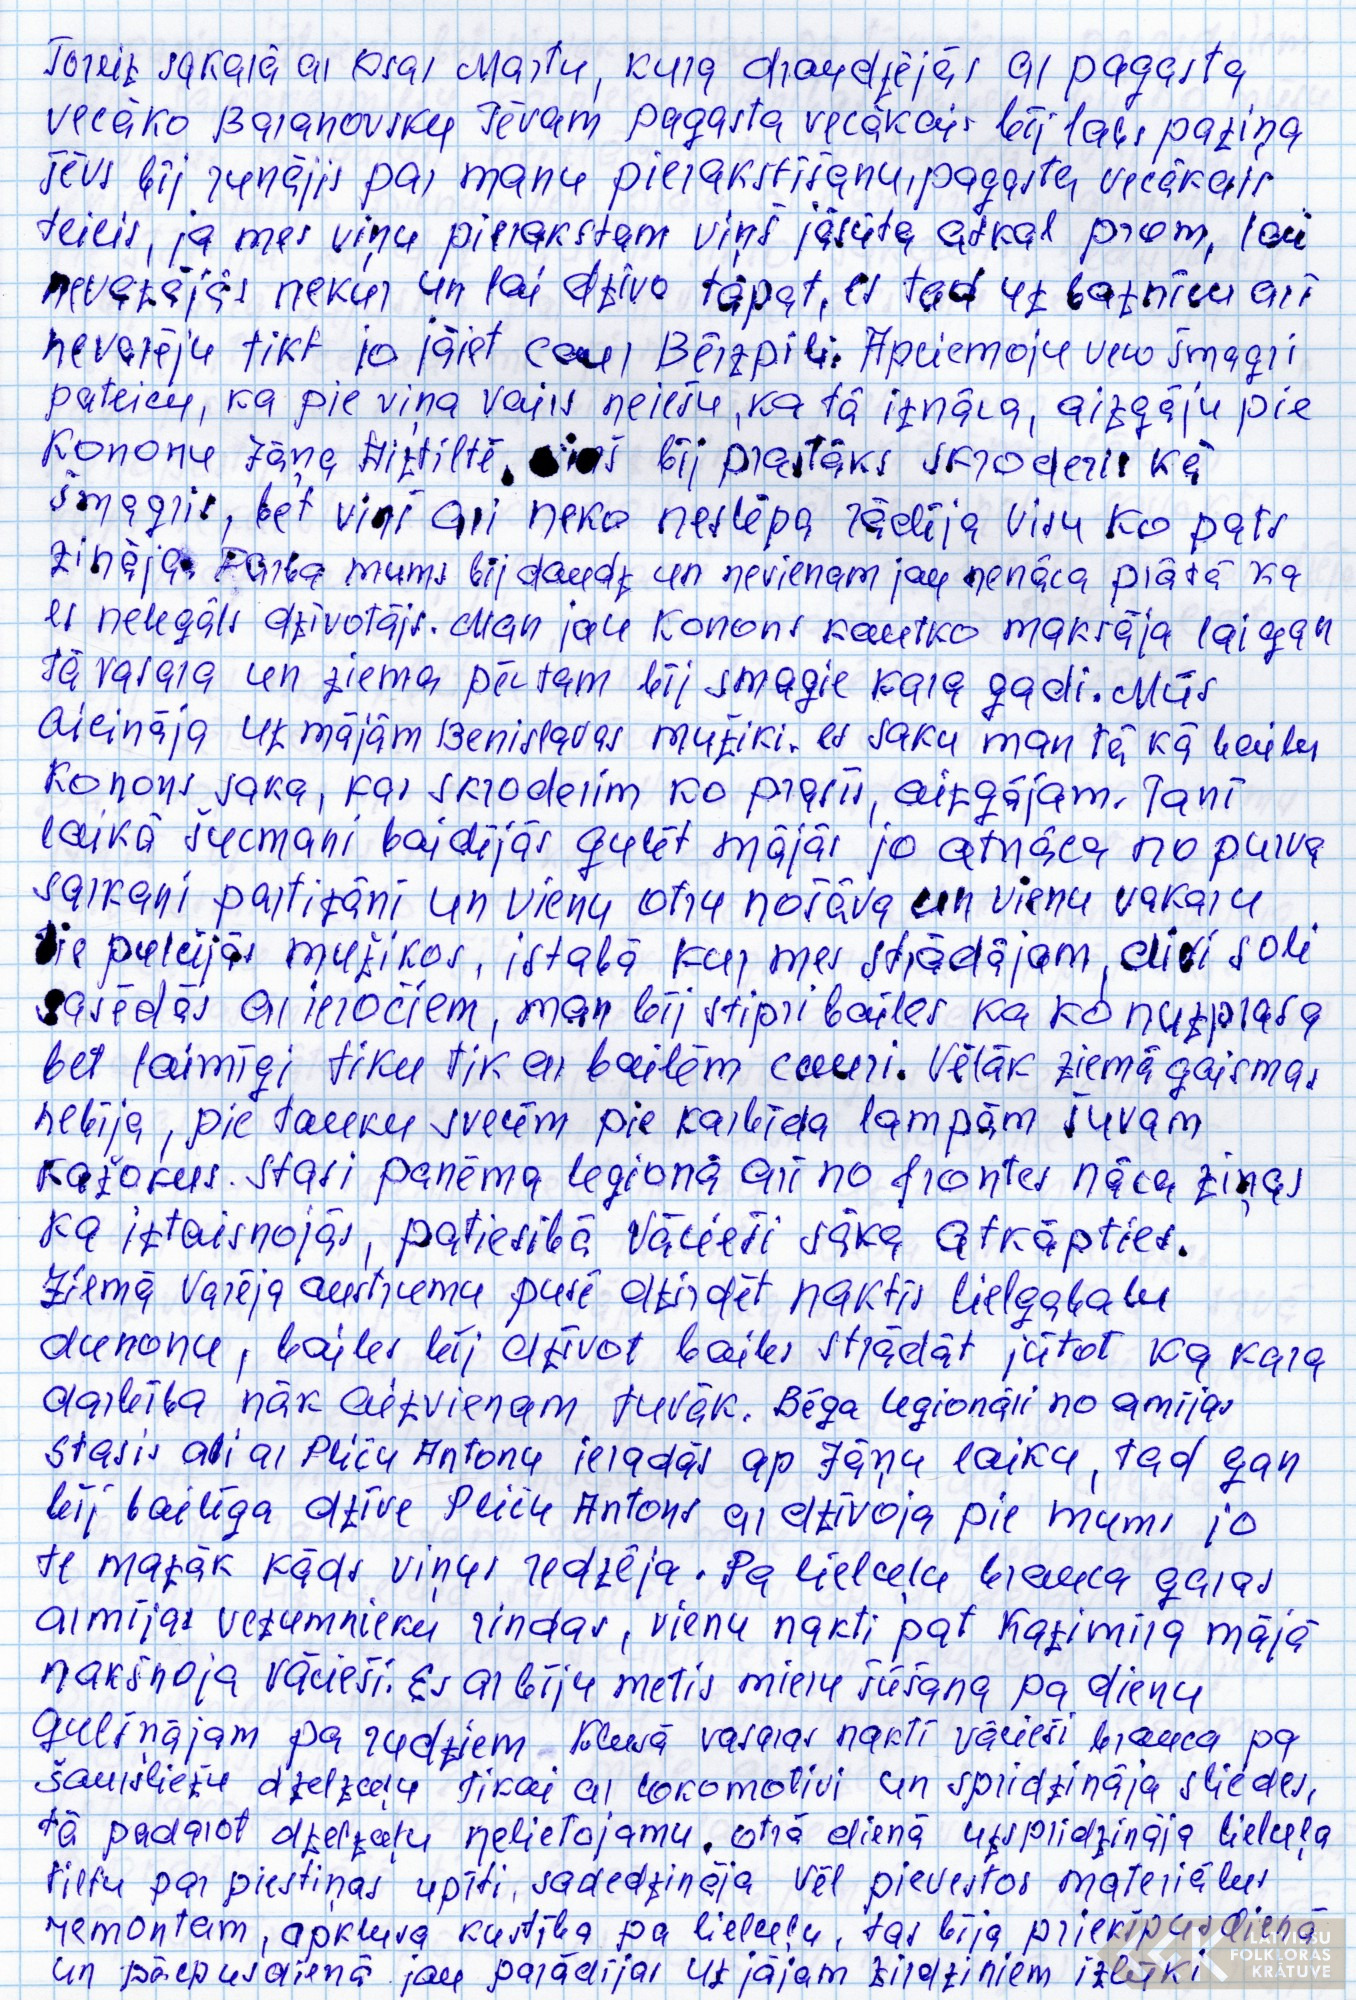 Toreiz sakarā ar Osar Martu, kura draudzējās ar pagasta
vecāko Baranovsku Tēvam pagasta vecākais bij labs paziņa
tēvs bij runājis par manu pierakstīšanu, pagasta vecākais
teicis, ja mes viņu pierakstam viņš jāsūta atkal prom, lai
nevazājās nekur un lai dzīvo tāpat, es tad uz baznīcu arī
nevarēju tikt jo jāiet caur Bērzpili. Apciemoju veco Šmagri
pateicu, ka pie viņa vairs neiešu, ka tā iznāca, aizgāju pie
Kononu Jāņa Aiztiltē, viņš bij prastāks skroderis kā
Šmagris, bet viņš arī neko neslēpa rādīja visu ko pats
zināja. Darba mums bij daudz un nevienam jau nenāca prātā ka
es nelegāls dzīvotājs. Man jau Konons kautko maksāja lai gan
tā vasara un ziema pēctam bij smagie kara gadi. Mūs
aicināja uz mājām Benislavas mužiki. es saku man tā kā bailes
Konons saka, kas skroderim ko prasīs, aizgājam. Tanī
laikā šucmaņi baidījās gulēt mājās jo atnāca no purva
sarkani partizāni un vienu otru nošāva un vienu vakaru
tie pulcējās mužikos, istabā kur mes strādājam, divi soli
sasēdās ar ieročiem, man bij stipri bailes ka ko neuzprasa
bet laimīgi tiku tik ar bailēm cauri. Vēlāk ziemā gaismas
nebija, pie tauku svecēm pie karbīda lampām šuvam
kažokus. Stasi paņēma legionā arī no frontes nāca ziņas
ka iztaisnojās, patiesībā Vācieši sāka atkāpties.
Ziemā varēja austrumu pusē dzirdēt naktīs lielgabalu
dunonu, bailes bij dzīvot bailes strādāt jūtot ka kara
darbība nāk aizvienam tuvāk. Bēga legionāri no armijas
Stasis arī ar Pliču Antonu ieradās ap Jāņu laiku, tad gan
bij bailīga dzīve Pliču Antons ar dzīvoja pie mums jo
te mazāk kāds viņus redzēja. Pa lielceļu brauca garas
armijas vezumnieku rindas, vienu nakti pat Kazimira mājā
nakšņoja Vācieši. Es ar biju metis mieru šūšana pa dienu
gulšņājam pa rudziem. Klusā vasaras naktī vācieši brauca pa
šaursliežu dzelzceļu tikai ar lokomotivi un spridzināja sliedes,
tā padarot dzelzceļu nelietojamu. otrā dienā uzspridzināja lielceļa
tiltu par piestiņas upīti, sadedzināja vēl pievestos materiālus
remontam, apklusa kustība pa lielceļu, tas bija priekšpusdienā
un pēcpusdienā jau parādījas uz jājam zirdziņiem izlūki
LATVIEŠU
FOLKLORAS
KRĀTUVE